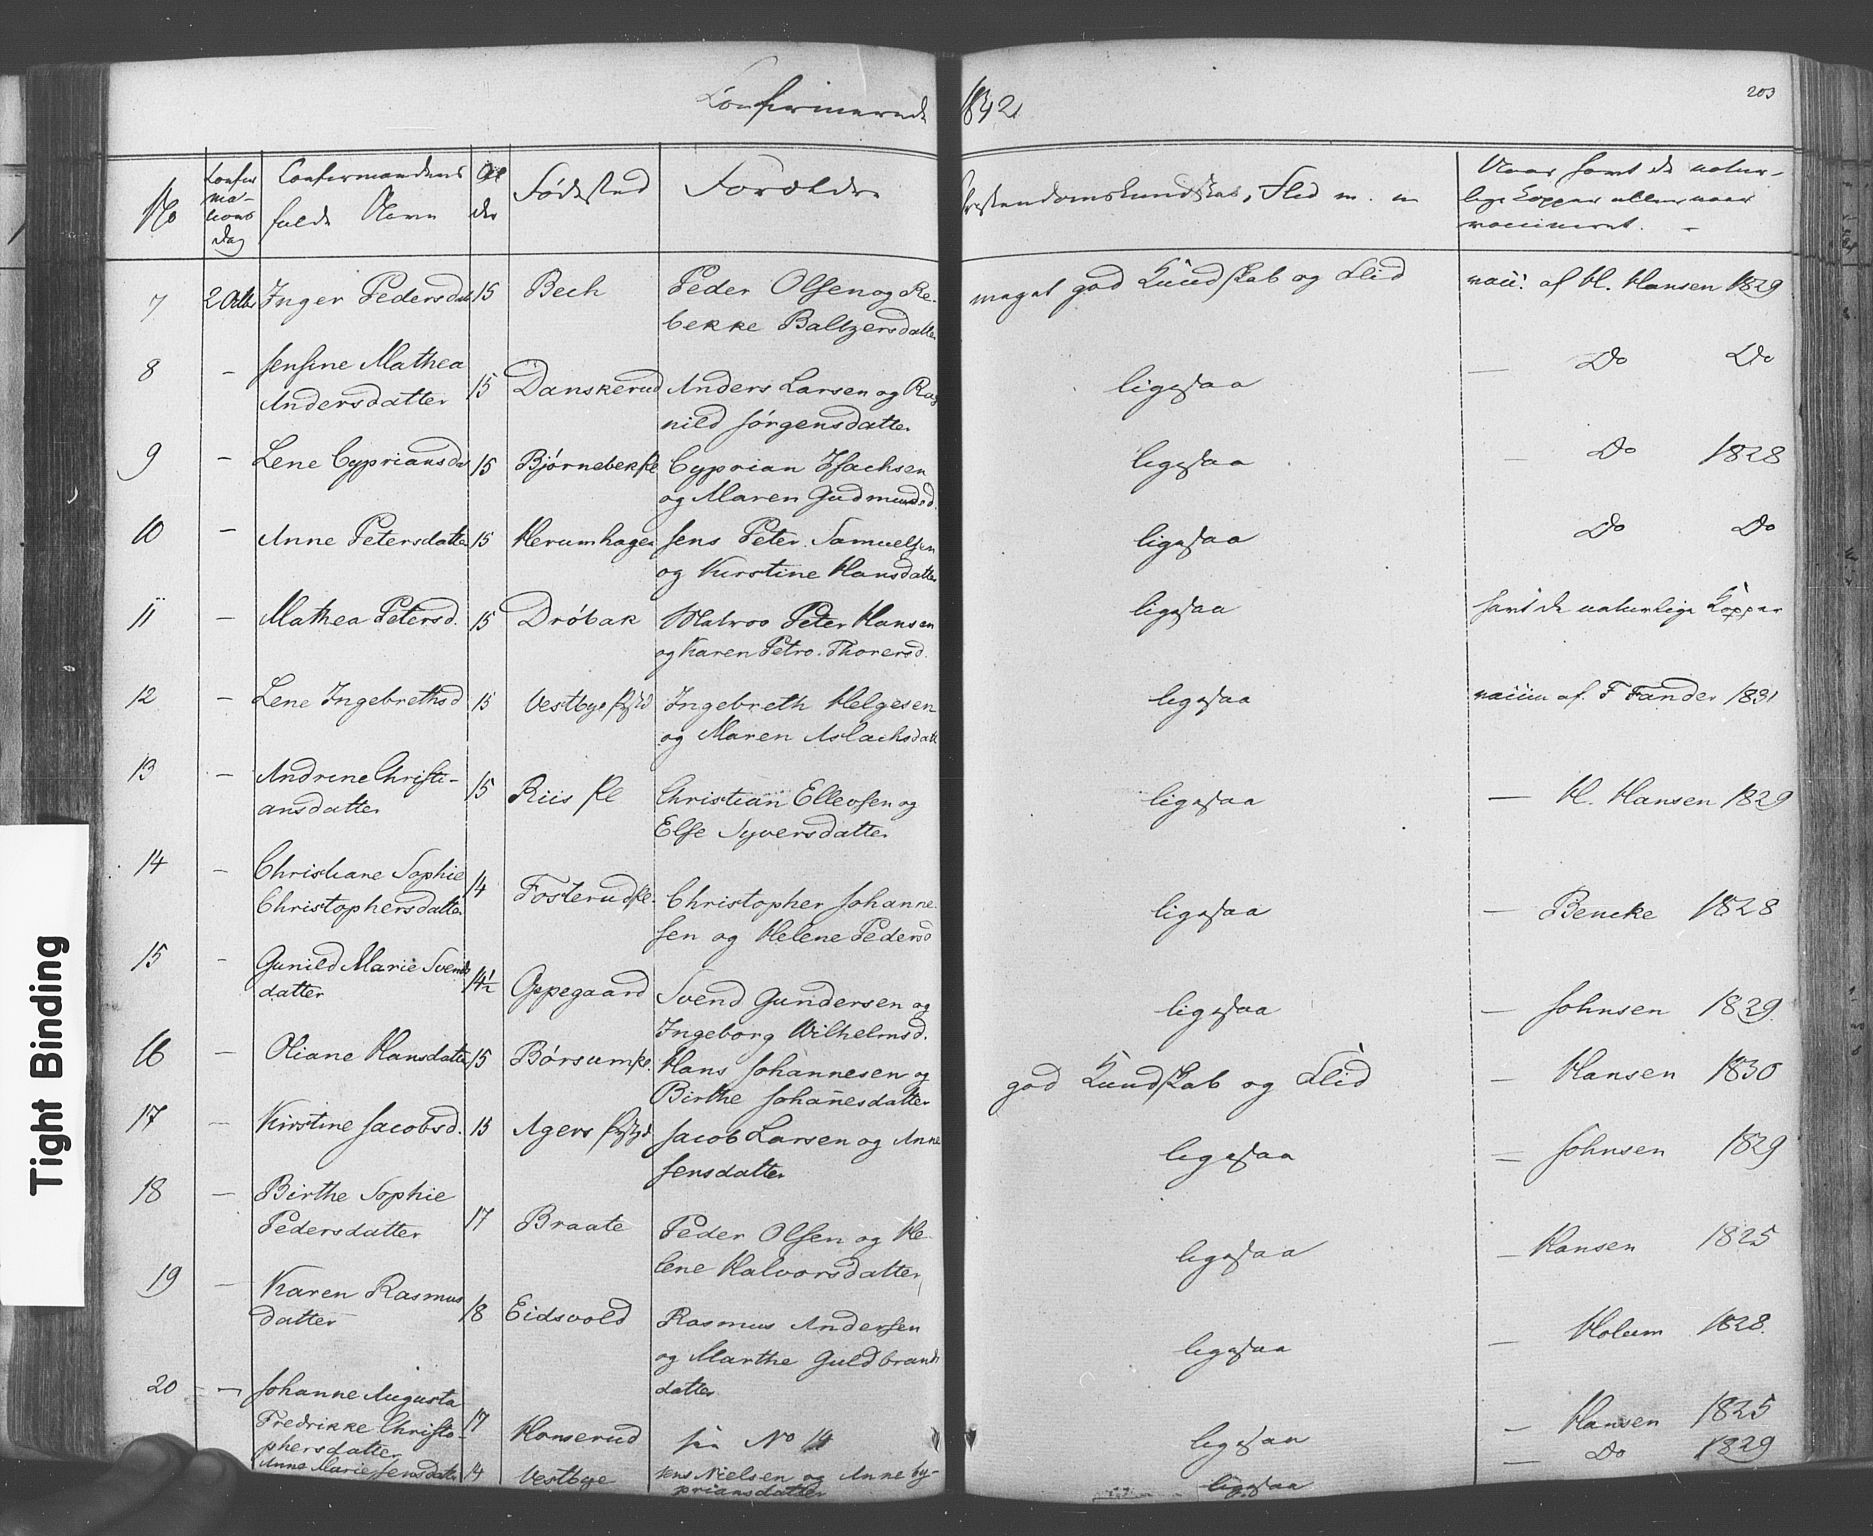 Confirmerede 1842
203
No
Confir
ma-
tions
Dag
Confirmandens
fulde Navn
Al
der
Födested
Forældre
Christendomskundskab, Flid m. m
Naar havt de natur-
lige Kopper eller naar
vaccineret.
7 2 Octbr Inger Pedersdat 15 Bech Peder Olsen og Re-
bekke Baltzersdatter
meget god Kundskab og Flid vacc: af H. Hansen 1829
8 - Jensine Mathea
Andersdatter 15 Danskerud Anders Larsen og Rag
nild Jörgensdatter
ligesaa — Do Do
9 - Lene Cypriansda 15 Björnebekke Cyprian Isachsen
og Maren Gudmundsd.
ligesaa — Do 1828
10 - Anne Petersdatter 15 Herumhagen Jens Peter Samuelsen
og Kirstine Hansdatter
ligesaa Do Do
11 - Mathea Petersd. 15 Dröbak Matros Peter Hansen
og Karen Petro. Thorersd.
ligesaa havt de naturlige Kopper
12 - Lene Ingebrethsd 15 Vestbye Ingebreth Helgesen
og Maren Aslachsdatt
ligesaa vaccin af. F Fander 1831
13 - Andrine Christi-
ansdatter 15 Riis Christian Ellevsen og
Else Syversdatter
ligesaa — H. Hansen 1829
14 - Christiane Sophie
Christophersdatter 14 Fosterud Christopher Johanne-
sen og Helene Pedersd
ligesaa — Bencke 1828
15 - Gunild Marie Svends
datter 14½ Oppegaard Svend Gundersen og
Ingeborg Wilhelmsd.
ligesaa — Johnsen 1829.
16 - Oliane Hansdatter 15 Börsum Hans Johannesen og
Birthe Johanesdatter
god Kundskab og Flid — Hansen 1830
17 - Kirstine Jacobsd. 15 Agers Jacob Larsen og Anne
Jensdatter
ligesaa — Johnsen 1829
18 - Birthe Sophie
Pedersdatter 17 Braate Peder Olsen og He-
lene Halvorsdatter
ligesaa — Hansen 1825
19 - Karen Rasmus
datter 18 Eidsvold Rasmus Andersen
og Marthe Guldbrands
datter
ligesaa — Holum 1828.
20 - Johanne Augusta
Fredrikke Christo-
phersdatter 17 Honserud No 14
ligesaa — Hansen 1825
Anne Marie Jensdatr 14 Vestbye Jens Nielsen og Anne Cy-
priansdatter
ligesaa — Do 1829
Tight Binding